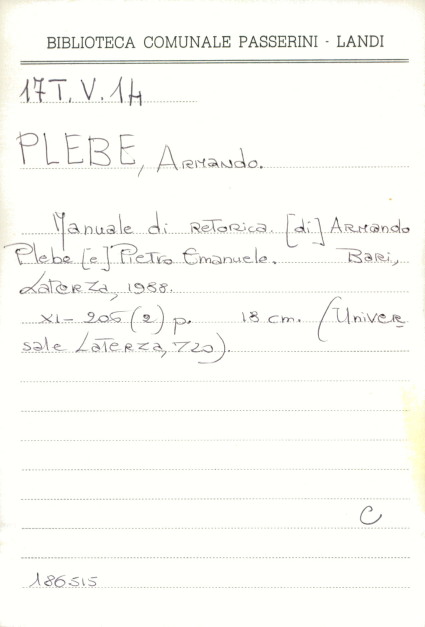 BIBLIOTECA COMUNALE PASSERINI - LANDI
17 T. V. 14
PLEBE, Armando.
Manuale di retorica. [di] Armando
Plebe [e] Pietro Emanuele. Bari,
Laterza, 1988.
XI- 205 (2) p. 18 cm. (Univer
sale Laterza, 720).
C
186515